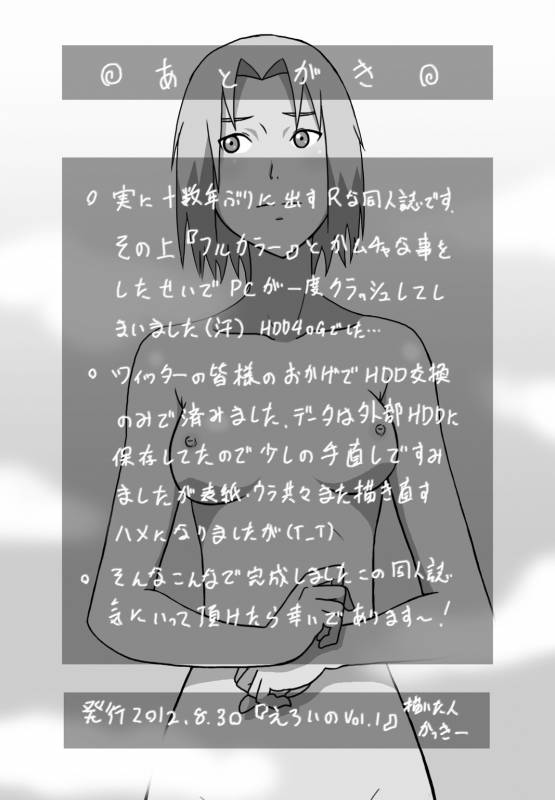 @ あとがき @
○ 実に十数年ぶりに出すRな同人誌です.
その上『フルカラー』とかムチャな事を
したせいでPCが一度クラッシュしてし
まいました(汗) HDD40Gでした…
○ ツイッターの皆様のおかげでHDD交換
のみで済みました. データは外部HDDに
保存してたので少しの手直しですみ
ましたが表紙・ウラ共々また描き直す
ハメになりましたが(T_T)
○ そんなこんなで完成しましたこの同人誌
気にいって頂けたら幸いであります〜!
発行2012.8.30『えろいのVol.1』描いた人
かっきー